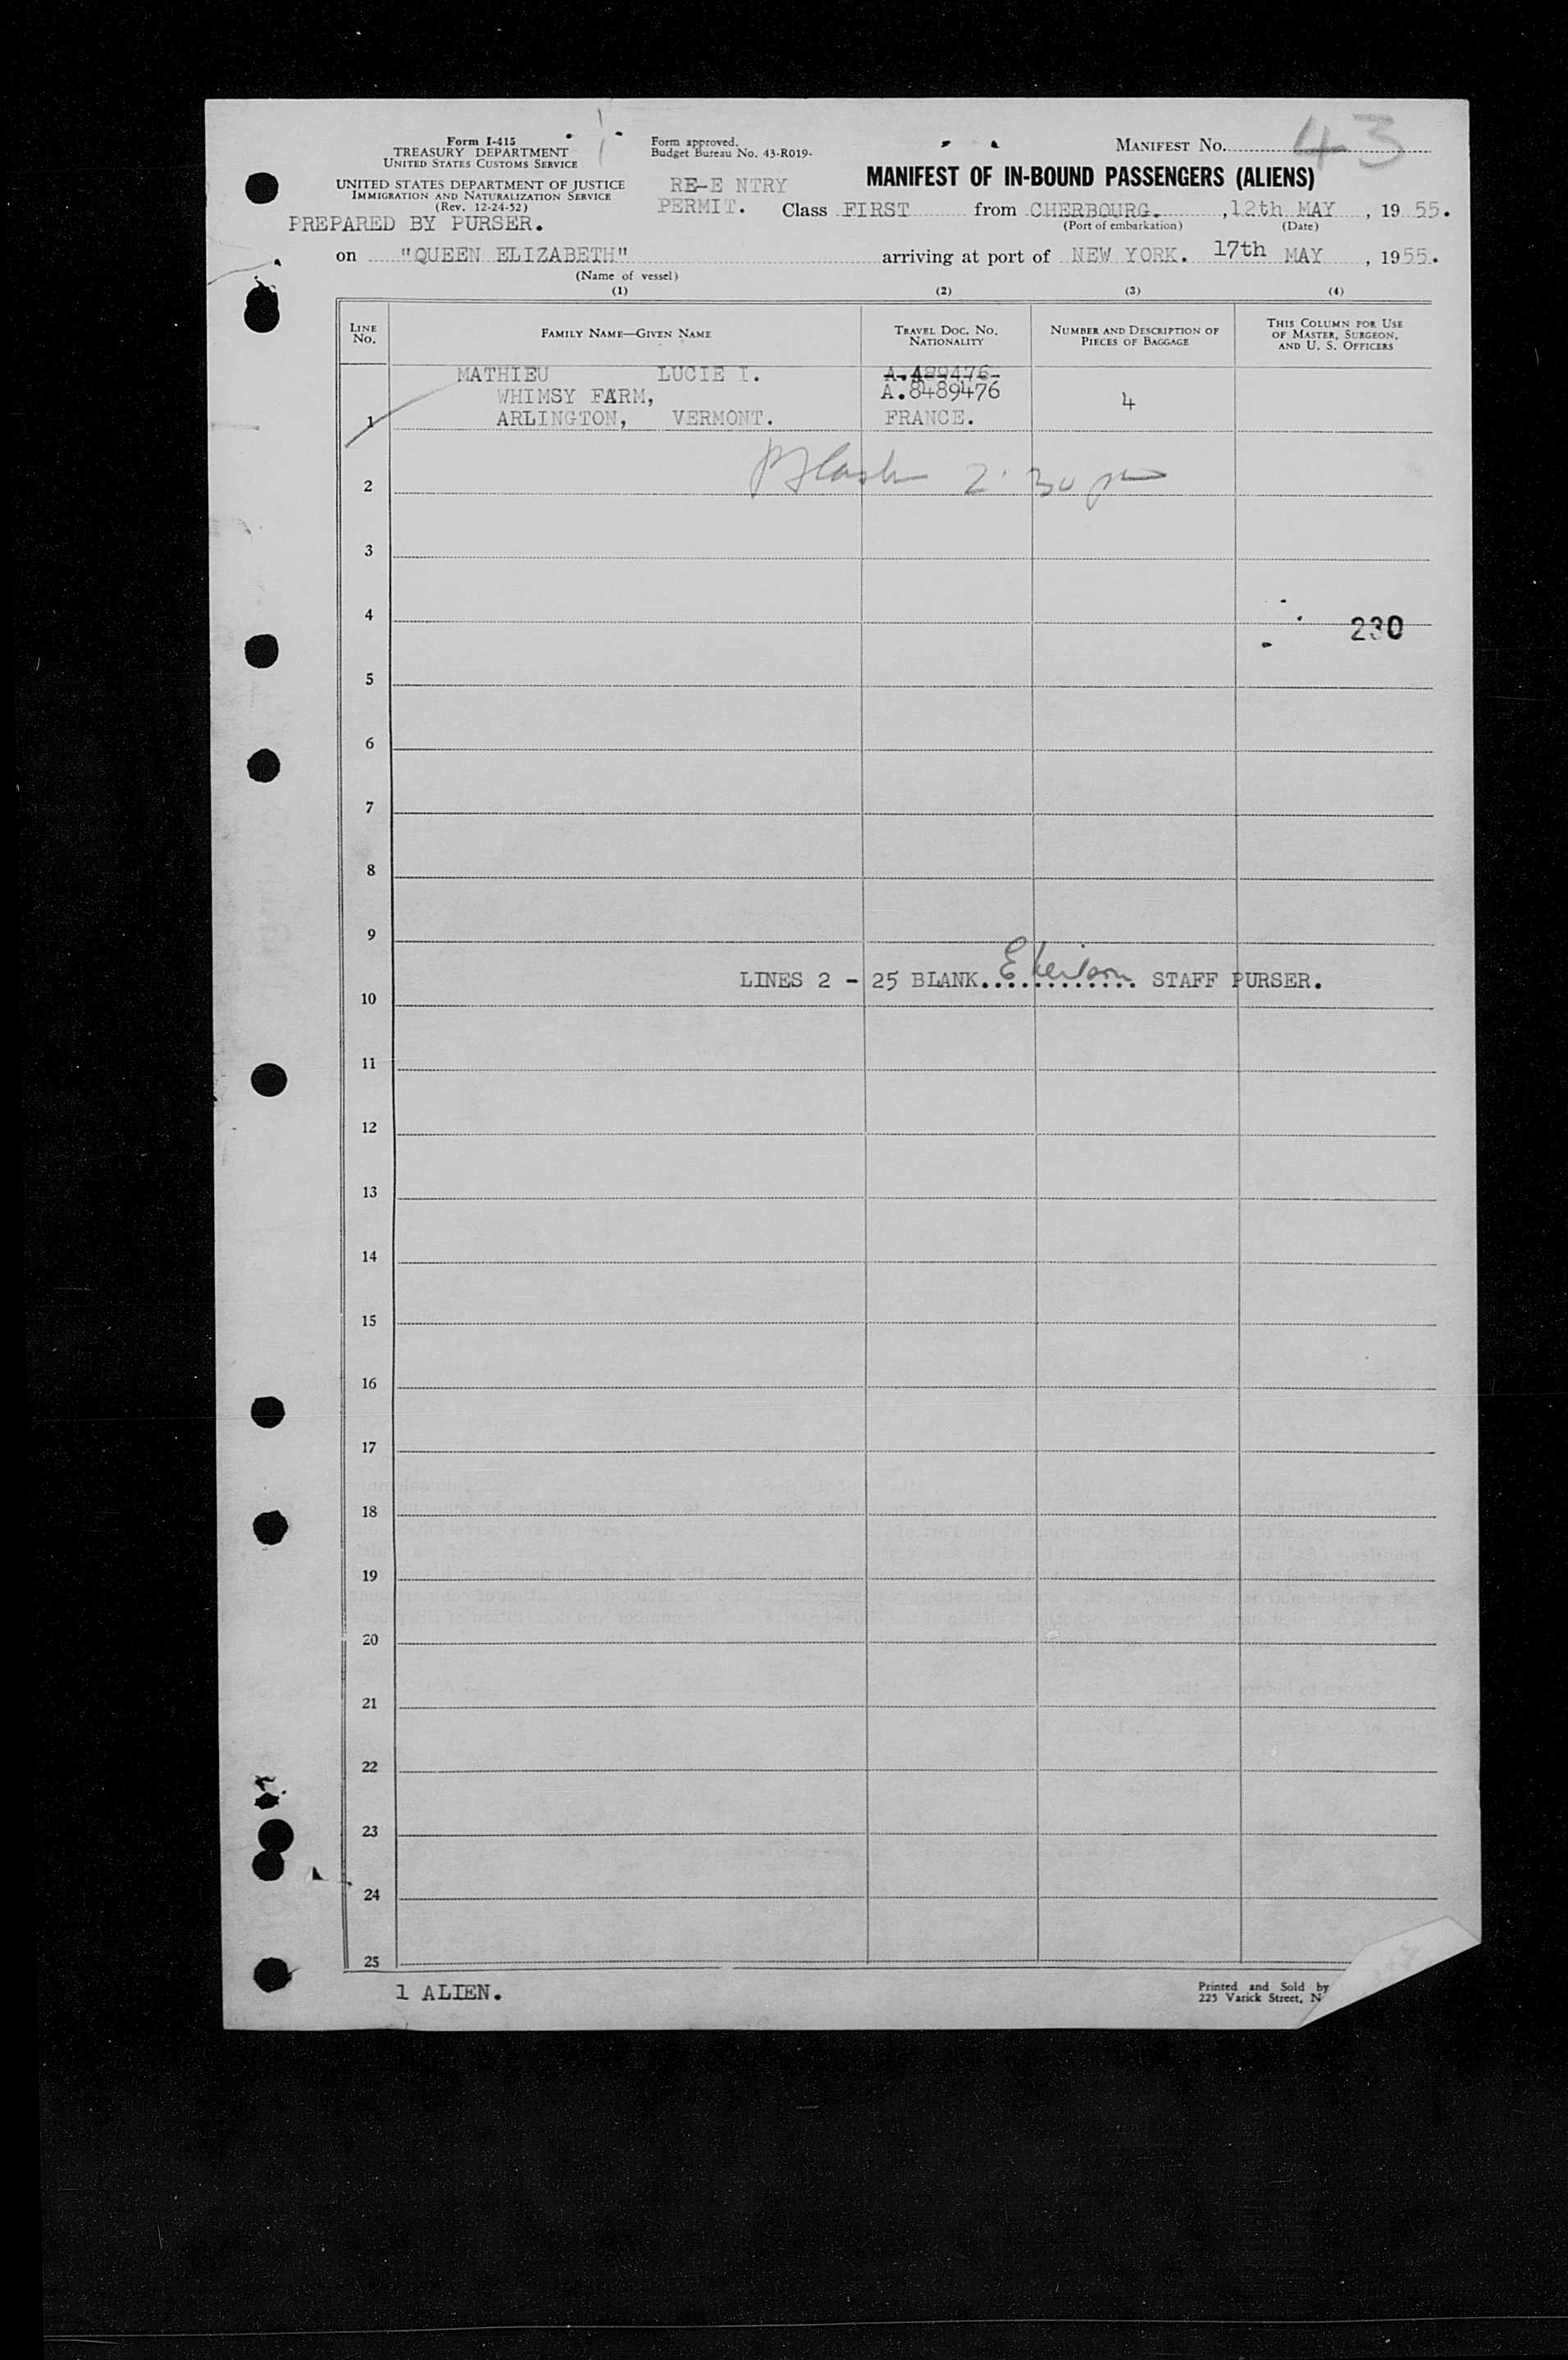 Form I-415
TREASURY DEPARTMENT
UNITED STATES CUSTOMS SERVICE
UNITED STATES DEPARTMENT OF JUSTICE
IMMIGRATION AND NATURALIZATION SERVICE
(Rev. 12-24-52)
PREPARED BY PURSER.
Form approved.
Budget Bureau No. 43-R019-
RE-E NTRY
PERMIT.
MANIFEST No. 43
MANIFEST OF IN-BOUND PASSENGERS (ALIENS)
Class FIRST from CHERBOURG. , 12th MAY , 19 55.
(Port of embarkation) (Date)
on "QUEEN ELIZABETH" arriving at port of NEW YORK. 17th MAY , 1955.
(Name of vessel)
(1) (2) (3) (4)
LINE No. FAMILY NAME—GIVEN NAME TRAVEL DOC. NO. NATIONALITY NUMBER AND DESCRIPTION OF PIECES OF BAGGAGE THIS COLUMN FOR USE OF MASTER, SURGEON, AND U. S. OFFICERS
MATHIEU LUCIE I. A.489476-
WHIMSY FARM, A.8489476 4
1 ARLINGTON, VERMONT. FRANCE.
2 2:30 pm
3
4 230
5
6
7
8
9
LINES 2 - 25 BLANK............. STAFF PURSER.
10
11
12
13
14
15
16
17
18
19
20
21
22
23
24
25
1 ALIEN.
Printed and Sold by
225 Varick Street, N